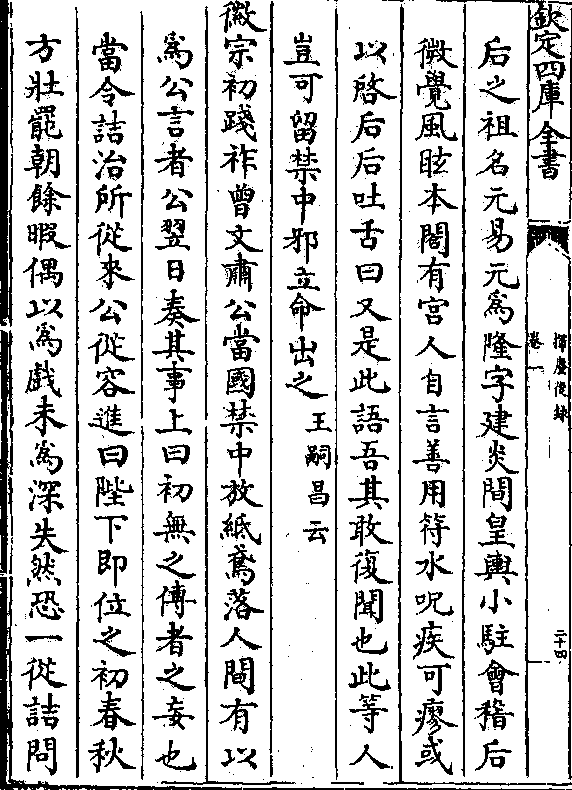 欽定四庫全書
揮麈後録
卷一
二十四
后之祖名元易元為隆字建炎間皇輿小駐會稽后
微覺風眩本閤有宫人自言善用符水呪疾可瘳或
以啓后后吐舌曰又是此語吾其敢復聞也此等人
豈可留禁中邪立命出之王嗣昌云
徽宗初踐祚曾文肅公當國禁中放紙鳶落人間有以
為公言者公翌日奏其事上曰初無之傳者之妄也
當令詰治所從來公從容進曰陛下即位之初春秋
方壯罷朝餘暇偶以為戲未為深失然恐一從詰問